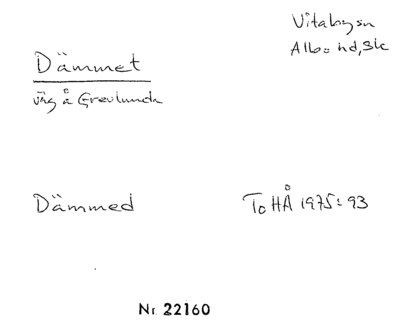 Vitabysn
Albo hd, Sk
Dämmet
väg å Grevlunda
Dämmed
ToHÅ 1975:93
Nr 22160